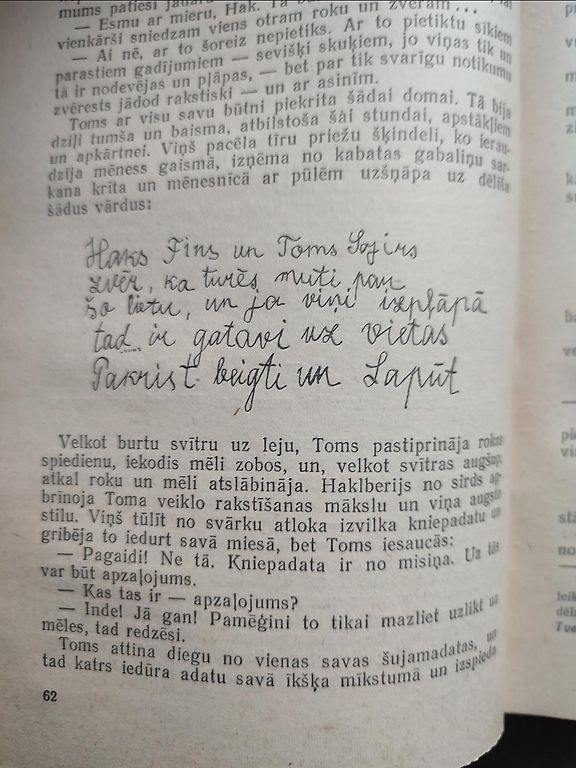 mums patiesi jādara, Hak. Tā
— Esmu ar mieru, Hak. Tā
vienkārši sniedzam viens otram roku un zvēram...
— Ai nē, ar to šoreiz nepietiks. Ar to pietiktu sīkiem
parastiem gadījumiem — sevišķi skuķiem, jo viņas tik un
tā ir nodevējas un pļāpas, — bet par tik svarīgu notikumu
zvērests jādod rakstiski — un ar asinīm.
Toms ar visu savu būtni piekrita šādai domai. Tā bija
dziļi tumša un baisma, atbilstoša šai stundai, apstākļiem
un apkārtnei. Viņš pacēla tīru priežu šķindeli, ko ierau-
dzīja mēness gaismā, izņēma no kabatas gabaliņu sar-
kana krīta un mēnesnīcā ar pūlēm uzšņāpa uz dēlīša
šādus vārdus:
Haks Fins un Toms Sojirs
zvēr, ka turēs muti par
šo lietu, un ja viņi izpļāpā
tad ir gatavi uz vietas
Pakrist beigti un Sapūt
Velkot burtu svītru uz leju, Toms pastiprināja rokas
spiedienu, iekodis mēli zobos, un, velkot svītras augšup,
atkal roku un mēli atslābināja. Haklberijs no sirds ap-
brīnoja Toma veiklo rakstīšanas mākslu un viņa augsto
stilu. Viņš tūlīt no svārku atloka izvilka kniepadatu un
gribēja to iedurt savā miesā, bet Toms iesaucās:
— Pagaidi! Ne tā. Kniepadata ir no misiņa. Uz tās
var būt apzaļojums.
— Kas tas ir — apzaļojums?
— Inde! Jā gan! Pamēģini to tikai mazliet uzlikt uz
mēles, tad redzēsi.
Toms attina diegu no vienas savas šujamadatas, un
tad katrs iedūra adatu savā īkšķa mīkstumā un izspieda
62